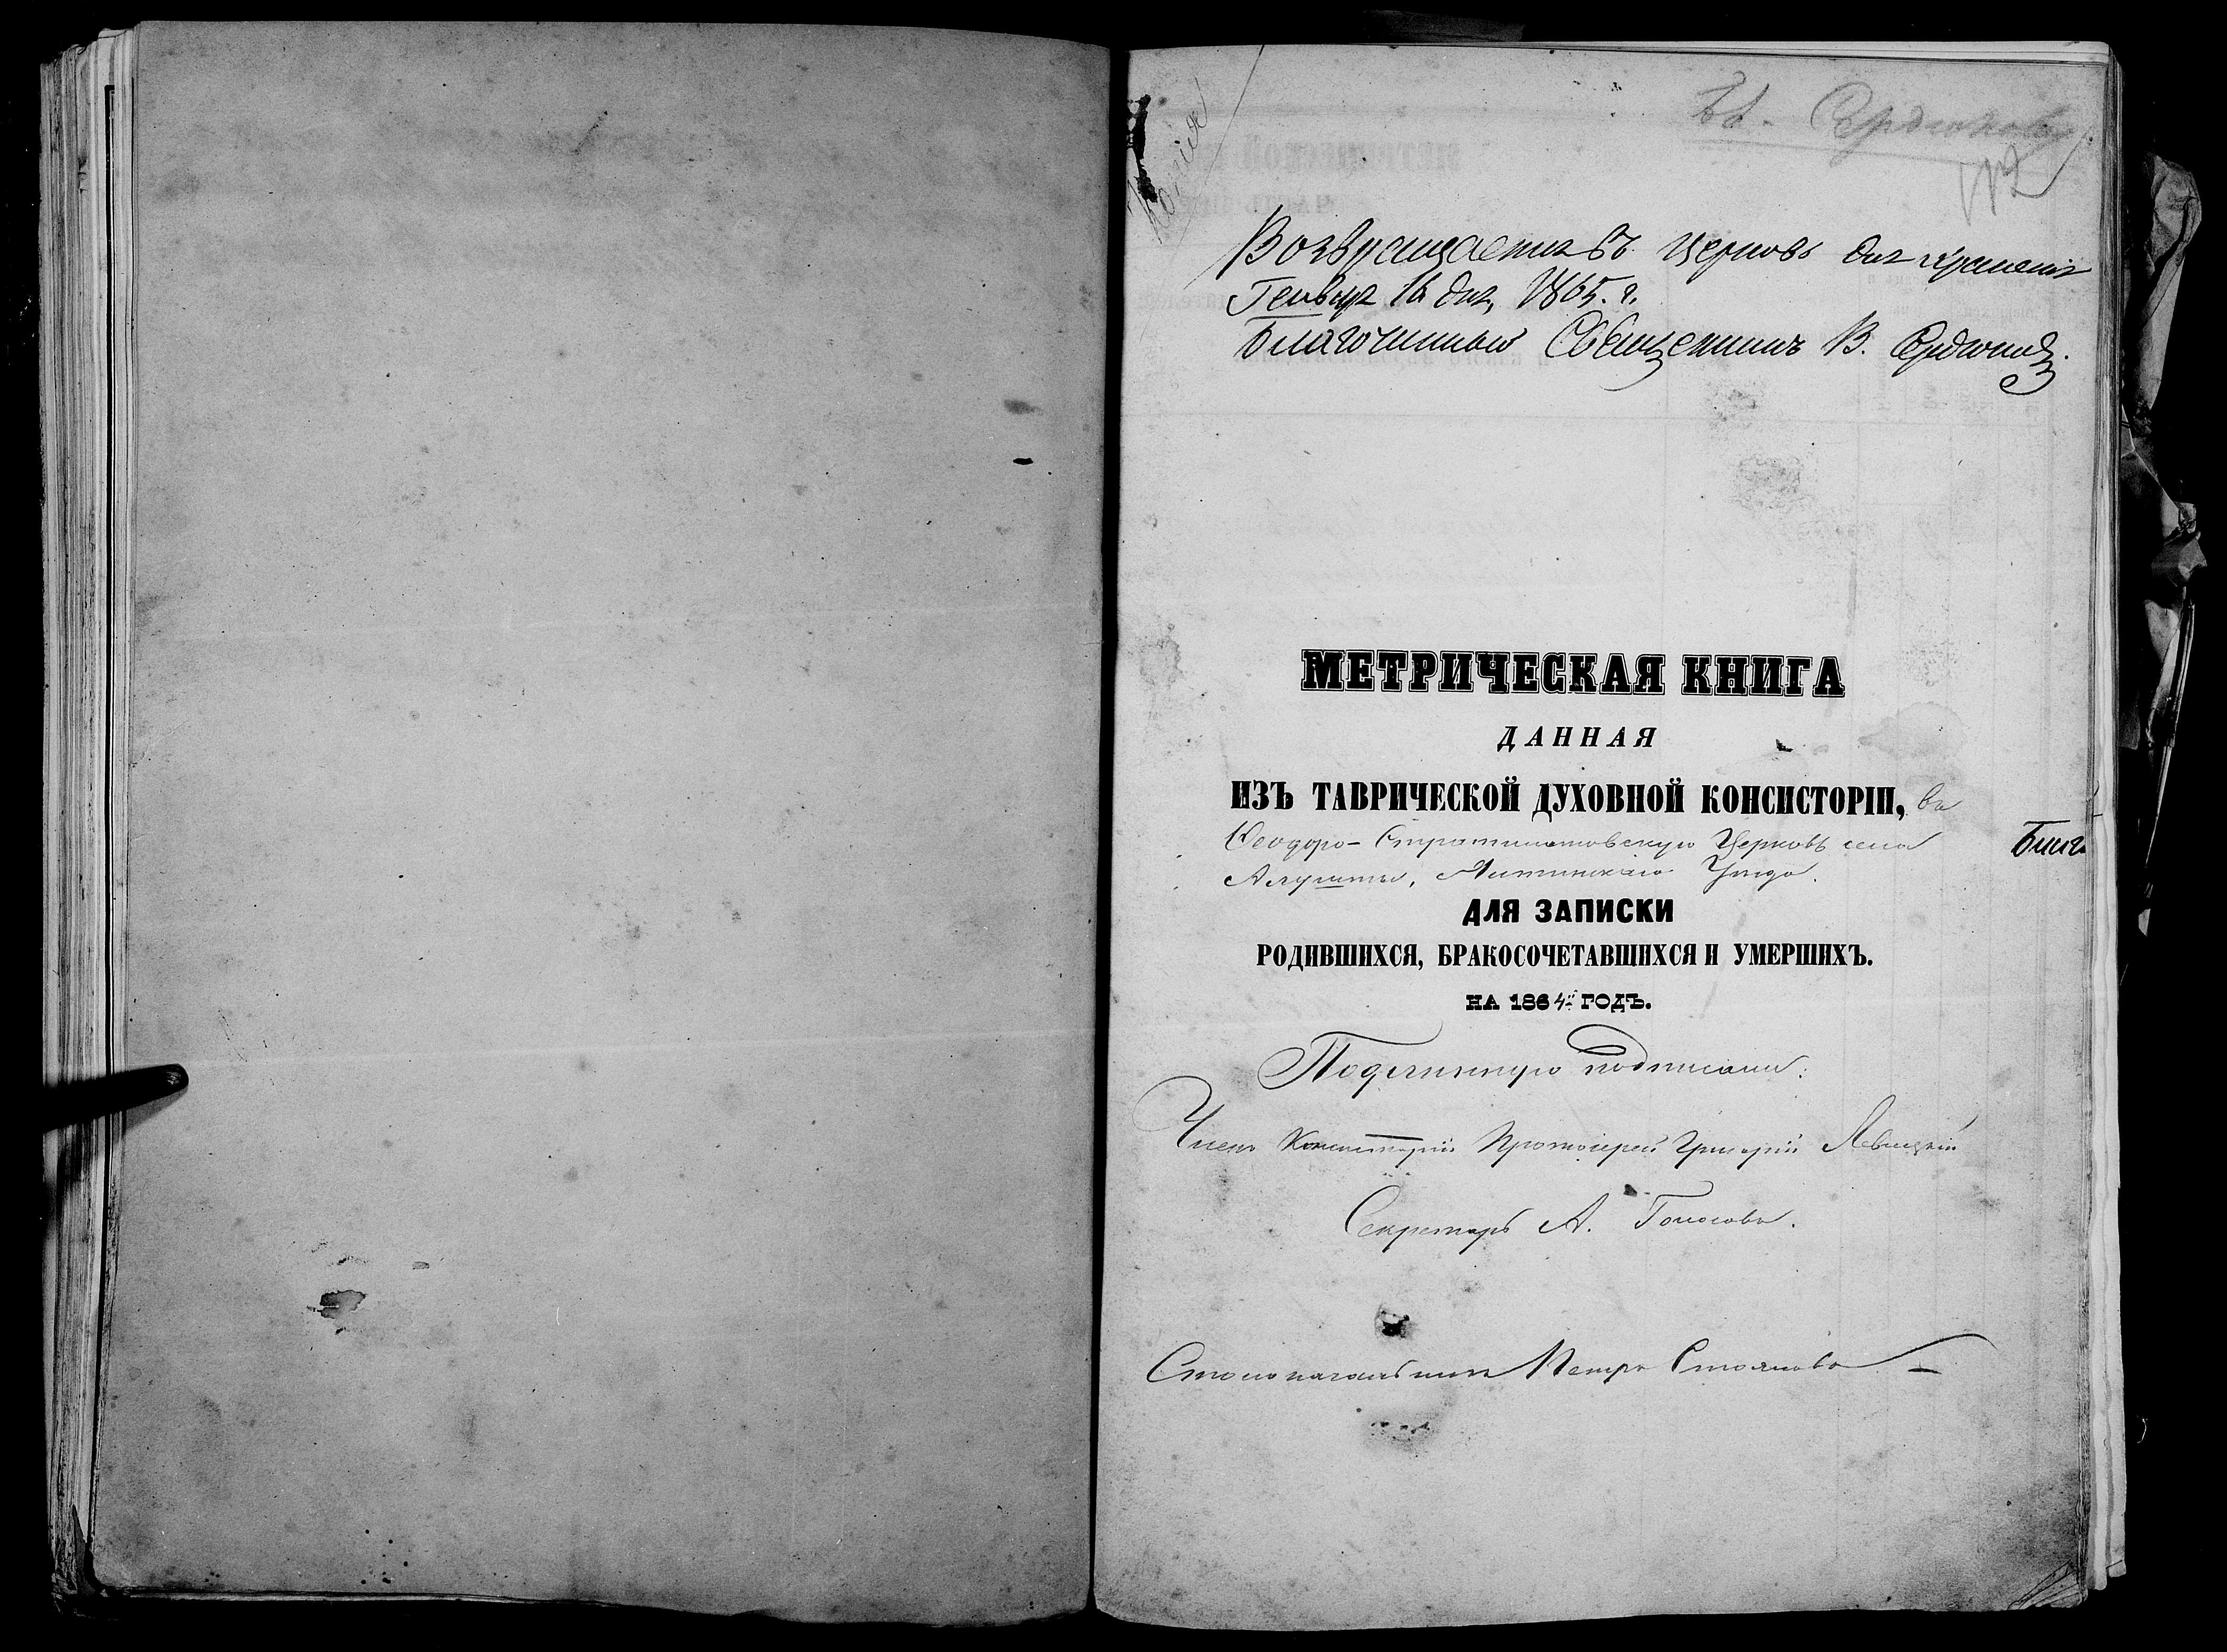 Копія
Бл. Сердюкова
112
Возвращается въ церковь для храненія
Генваря 16 дня, 1865. г.
Благочинный Священникъ В. Сердюковъ.
МЕТРИЧЕСКАЯ КНИГА
ДАННАЯ
ИЗЪ ТАВРИЧЕСКОЙ ДУХОВНОЙ КОНСИСТОРІИ, въ
Ѳеодоро-Стратилатовскую Церковь села
Алушты, Ялтинскаго Уѣзда.
Благ
ДЛЯ ЗАПИСКИ
РОДИВШИХСЯ, БРАКОСОЧЕТАВШИХСЯ И УМЕРШИХЪ.
НА 1864й ГОДЪ.
Подлинную подписали:
Членъ Консисторіи Протоіерей Григорій
Секретарь А. Голосовъ.
Столоначальникъ Петръ Стояновъ